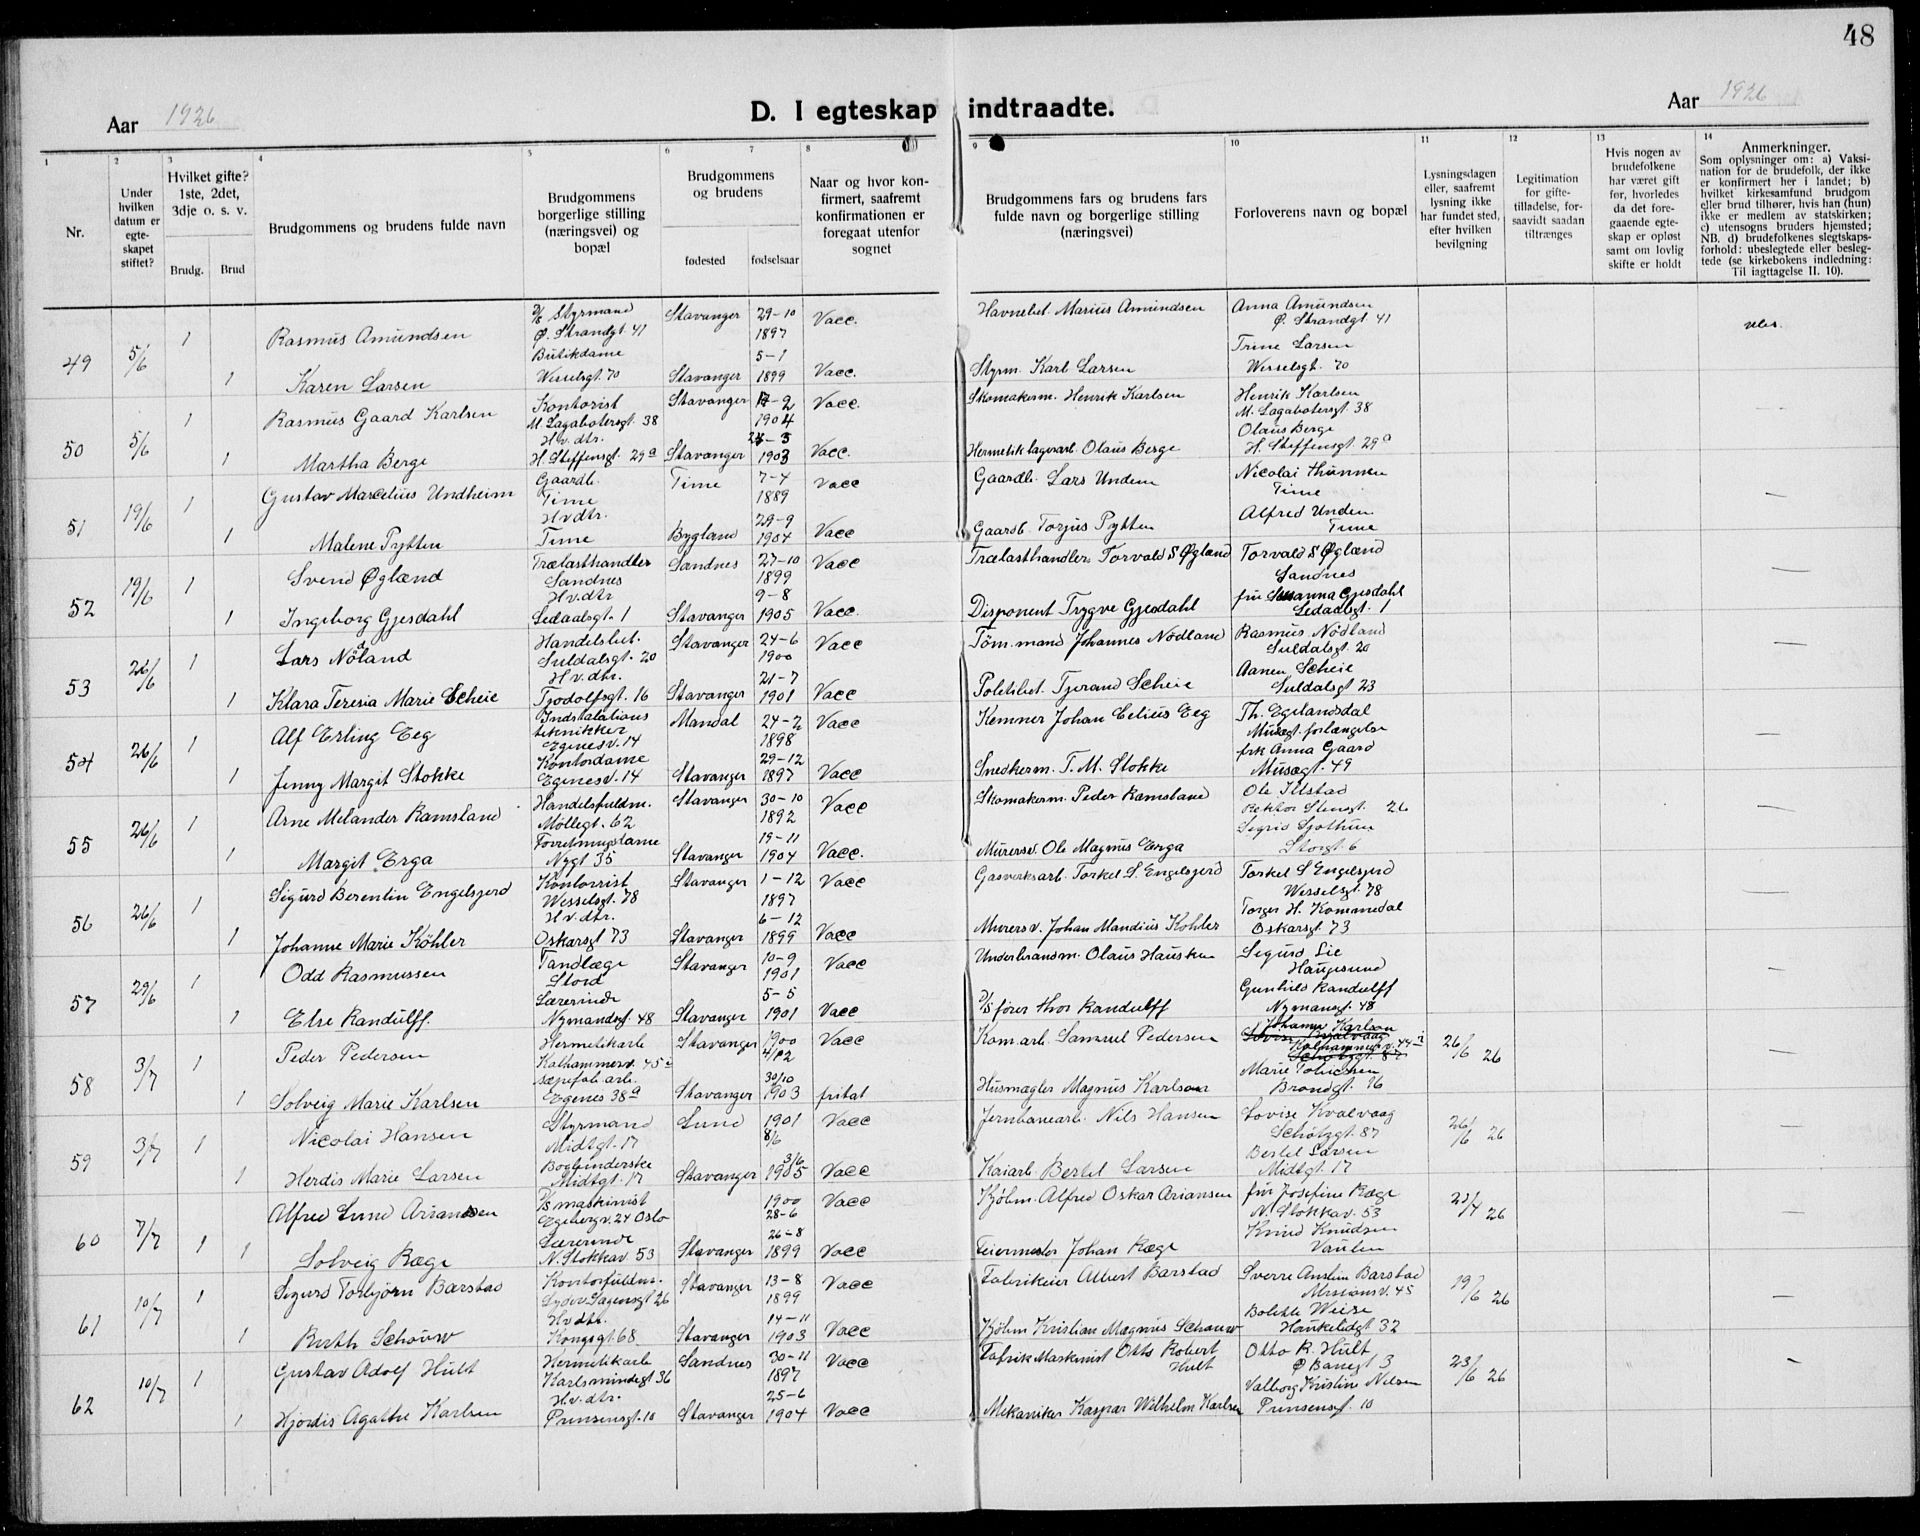 48
Aar 1926
D. I egteskap indtraadte.
Aar 1926
1 2 3 4 5 6 7 8 9 10 11 12 13 14
Nr.
Under hvilken datum er egteskapet stiftet?
Hvilket gifte? 1ste, 2det, 3dje o. s. v.
Brudg. Brud
Brudgommens og brudens fulde navn
Brudgommens borgerlige stilling (næringsvei) og bopæl
Brudgommens og brudens
fødested fødselsaar
Naar og hvor konfirmert, saafremt konfirmationen er foregaat utenfor sognet
Brudgommens fars og brudens fars fulde navn og borgerlige stilling (næringsvei)
Forloverens navn og bopæl
Lysningsdagen eller, saafremt lysning ikke har fundet sted, efter hvilken bevilgning
Legitimation for giftetilladelse, forsaavidt saadan tiltrænges
Hvis nogen av brudefolkene har været gift før, hvorledes da det foregaaende egteskap er opløst samt om lovlig skifte er holdt
Anmerkninger.
Som oplysninger om: a) Vaksination for de brudefolk, der ikke er konfirmert her i landet; b) hvilket kirkesamfund brudgom eller brud tilhører, hvis han (hun) ikke er medlem av statskirken; c) utensogns bruders hjemsted; NB. d) brudefolkenes slegtskapsforhold: ubeslegtede eller beslegtede (se kirkebokens indledning: Til iagttagelse II. 10).
49 5/6 1 Rasmus Amundsen D/S Styrmand Ø. Strandgt. 41 Stavanger 29-10 1897 Vacc. Havnebet. Marius Amundsen Anna Amundsen Ø. Strandgt. 41
1 Karen Larsen Butikdame Wesselsgt. 70 Stavanger 5-1 1899 Vacc. Styrm. Karl Larsen Trine Larsen Wesselsgt. 70
50 5/6 1 Rasmus Gaard Karlsen Kontorist M. Lagabotersgt. 38 Stavanger 1904 Vacc. Skomakerm. Henrik Karlsen Henrik Karlsen M. Lagabotersgt. 38
1 Martha Berge H.v.dtr. H. Steffensgt. 29a Stavanger 1903 Vacc. Hermetik lagerarb. Olaus Berge Olaus Berge H. Steffensgt. 29a
51 19/6 1 Gustav Marcelius Undheim Gaardb. Time Time 7-4 1889 Vacc Gaardb. Lars Undem Nicolai Thunnen Time
1 Malene Tytten H.v.dtr. Time Bygland 29-9 1904 Vacc Gaardb. Torjus Pytten Alfred Unden Time
52 19/6 1 Svend Øglænd Trælasthandler Sandnes Sandnes 27-10 1899 Vacc Trælasthandler Torvald S Øgland Torvald S Øglænd Sandnes
1 Ingeborg Gjesdahl H.v.dtr Ledaalsgt. 1 Stavanger 9-8 1905 Vacc. Disponent Trygve Gjesdahl fru Susanna Gjesdahl Ledaalsgt. 1
53 26/6 1 Lars Nödland Handelsbet. Suldalsgt. 20 Stavanger 24-6 1900 Vacc Töm.mand Johannes Nodland Rasmus Nødland Suldalsgt. 20
1 Klara Teresia Marie Scheie H.v.dtr. Tjodolfsgt. 16 Stavanger 21-7 1901 Vacc Politibet. Tjerand Scheie Aanen Scheie Suldalsgt 23
54 26/6 1 Alf Erling Eeg Indstalations tekniker Egenesv. 14 Mandal 24-2 1898 Vacc Kemner Johan Celius Eeg Th. Egelandsdal Musægt. forlængelse
1 Jenny Margit Stokke Kontordame Egenesv. 14 Stavanger 29-12 1897 Vacc Snedkerm. T. M. Stokke frk Anna Gaard Musægt. 49
55 26/6 1 Arne Melander Ramsland Handelsfuldm. Møllegt. 62 Stavanger 30-10 1892 Vacc Skomakerm. Peder Ramsland Ole Ilstad Rektor Stensgt. 26
1 Margit Erga Forretningsdame Nygt 35 Stavanger 19-11 1904 Vacc. Murersv. Ole Magnus Erga Sigrid Sjothun Storgt. 6
56 26/6 1 Sigurd Berentin Engelsgjerd Kontorist Wesselsgt. 78 Stavanger 1-12 1897 Vacc Gasverksarb. Torkel S. Engelsgjerd Torkel S Engelsgjerd Wesselsgt. 78
1 Johanne Marie Köhler H.v.dtr. Oskarsgt 73 Stavanger 6-12 1899 Vacc Murersv. Johan Mandius Kohler Torger H. Kommedal Oskarsgt. 73
57 29/6 1 Odd Rasmussen Tandlæge Stord Stavanger 10-9 1901 Vacc Underbrandm. Olaus Hausken Sigurd Lie Haugesund
1 Else Randulff. Lærerinde Nymandsgt. 48 Stavanger 5-5 1901 Vacc D/S fører Thor Randulff Gunhild Randulff Nymansgt. 48
58 3/7 1 Peder Pedersen Hermetikarb Kalhammerv. 45 Stavanger 1900 4/12 Vacc Kom.arb. Samuel Pedersen Johanne Karlsen Kalhammerv. 44 26/6 26
1 Solveig Marie Karlsen sæpefab. arb. Egenes 38a Stavanger 30/10 1903 fritat Husmægler Magnus Karlsen Marie Tobiesen Brondgt. 76
59 3/7 1 Nicolai Hansen Styrmand Midtgt. 17 Lund 1901 8/6 Vacc Jernbanearb. Nils Hansen Lovise Kvalvaag Schøtzgt. 87 26/6 26
1 Herdis Marie Larsen Bogbinderske Midtgt. 17 Stavanger 3/6 1905 Vacc Kaiarb. Bertel Larsen Bertel Larsen Midtgt. 17
60 7/7 1 Alfred Lund Ariansen D/S maskinist Egebergv. 24 Oslo 1900 28-6 Vacc Kjølm. Alfred Oskar Ariansen fru Josefine Ræge N. Stokkav. 53 26
1 1 Solveig Ræge Lærerinde N. Stokkav 53 Stavanger 26-8 1899 Vacc Feiermester Johan Ræge Knud Knudsen Vaulen
61 10/7 1 Sigurd Torbjørn Barstad Kontorfuldm. Lyder Sagensgt 26 Stavanger 13-8 1899 Vacc Fabrikeier Albert Barstad Sverre Anslim Barstad Missionsv. 45 19/6 26
1 Ruth Schouw H.v.dtr. Kongsgt. 68 Stavanger 14-11 1903 Vacc Kjølm Kristian Magnus Schouw Bolette Weise Haukelidgt 32
62 10/7 1 Gustav Adolf Hult Hermetikarb Karlsmindegt 36 Sandnes 30-11 1897 Vacc Fabrik Maskinist Otto Robert Hult Otto R. Hult Ø Banegt 3 23/6 26
1 Hjordis Agathe Karlsen H.v.dtr. Prinsensgt. 10 Stavanger 25-6 1904 Vacc Mekaniker Kaspar Wilhelm Karlsen Valborg Kristine Nilsen Prinsensgt. 10